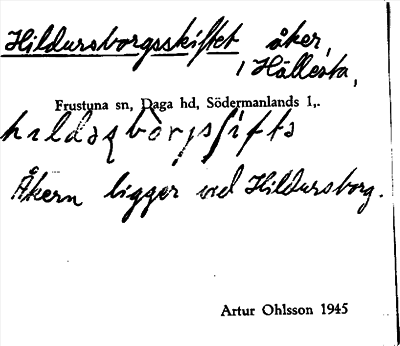 Hildursborgsskiftet åker,
i Hällesta,
Frustuna sn, Daga hd, Södermanlands l,.
Åkern ligger vid Hildursborg.
Artur Ohlsson 1945